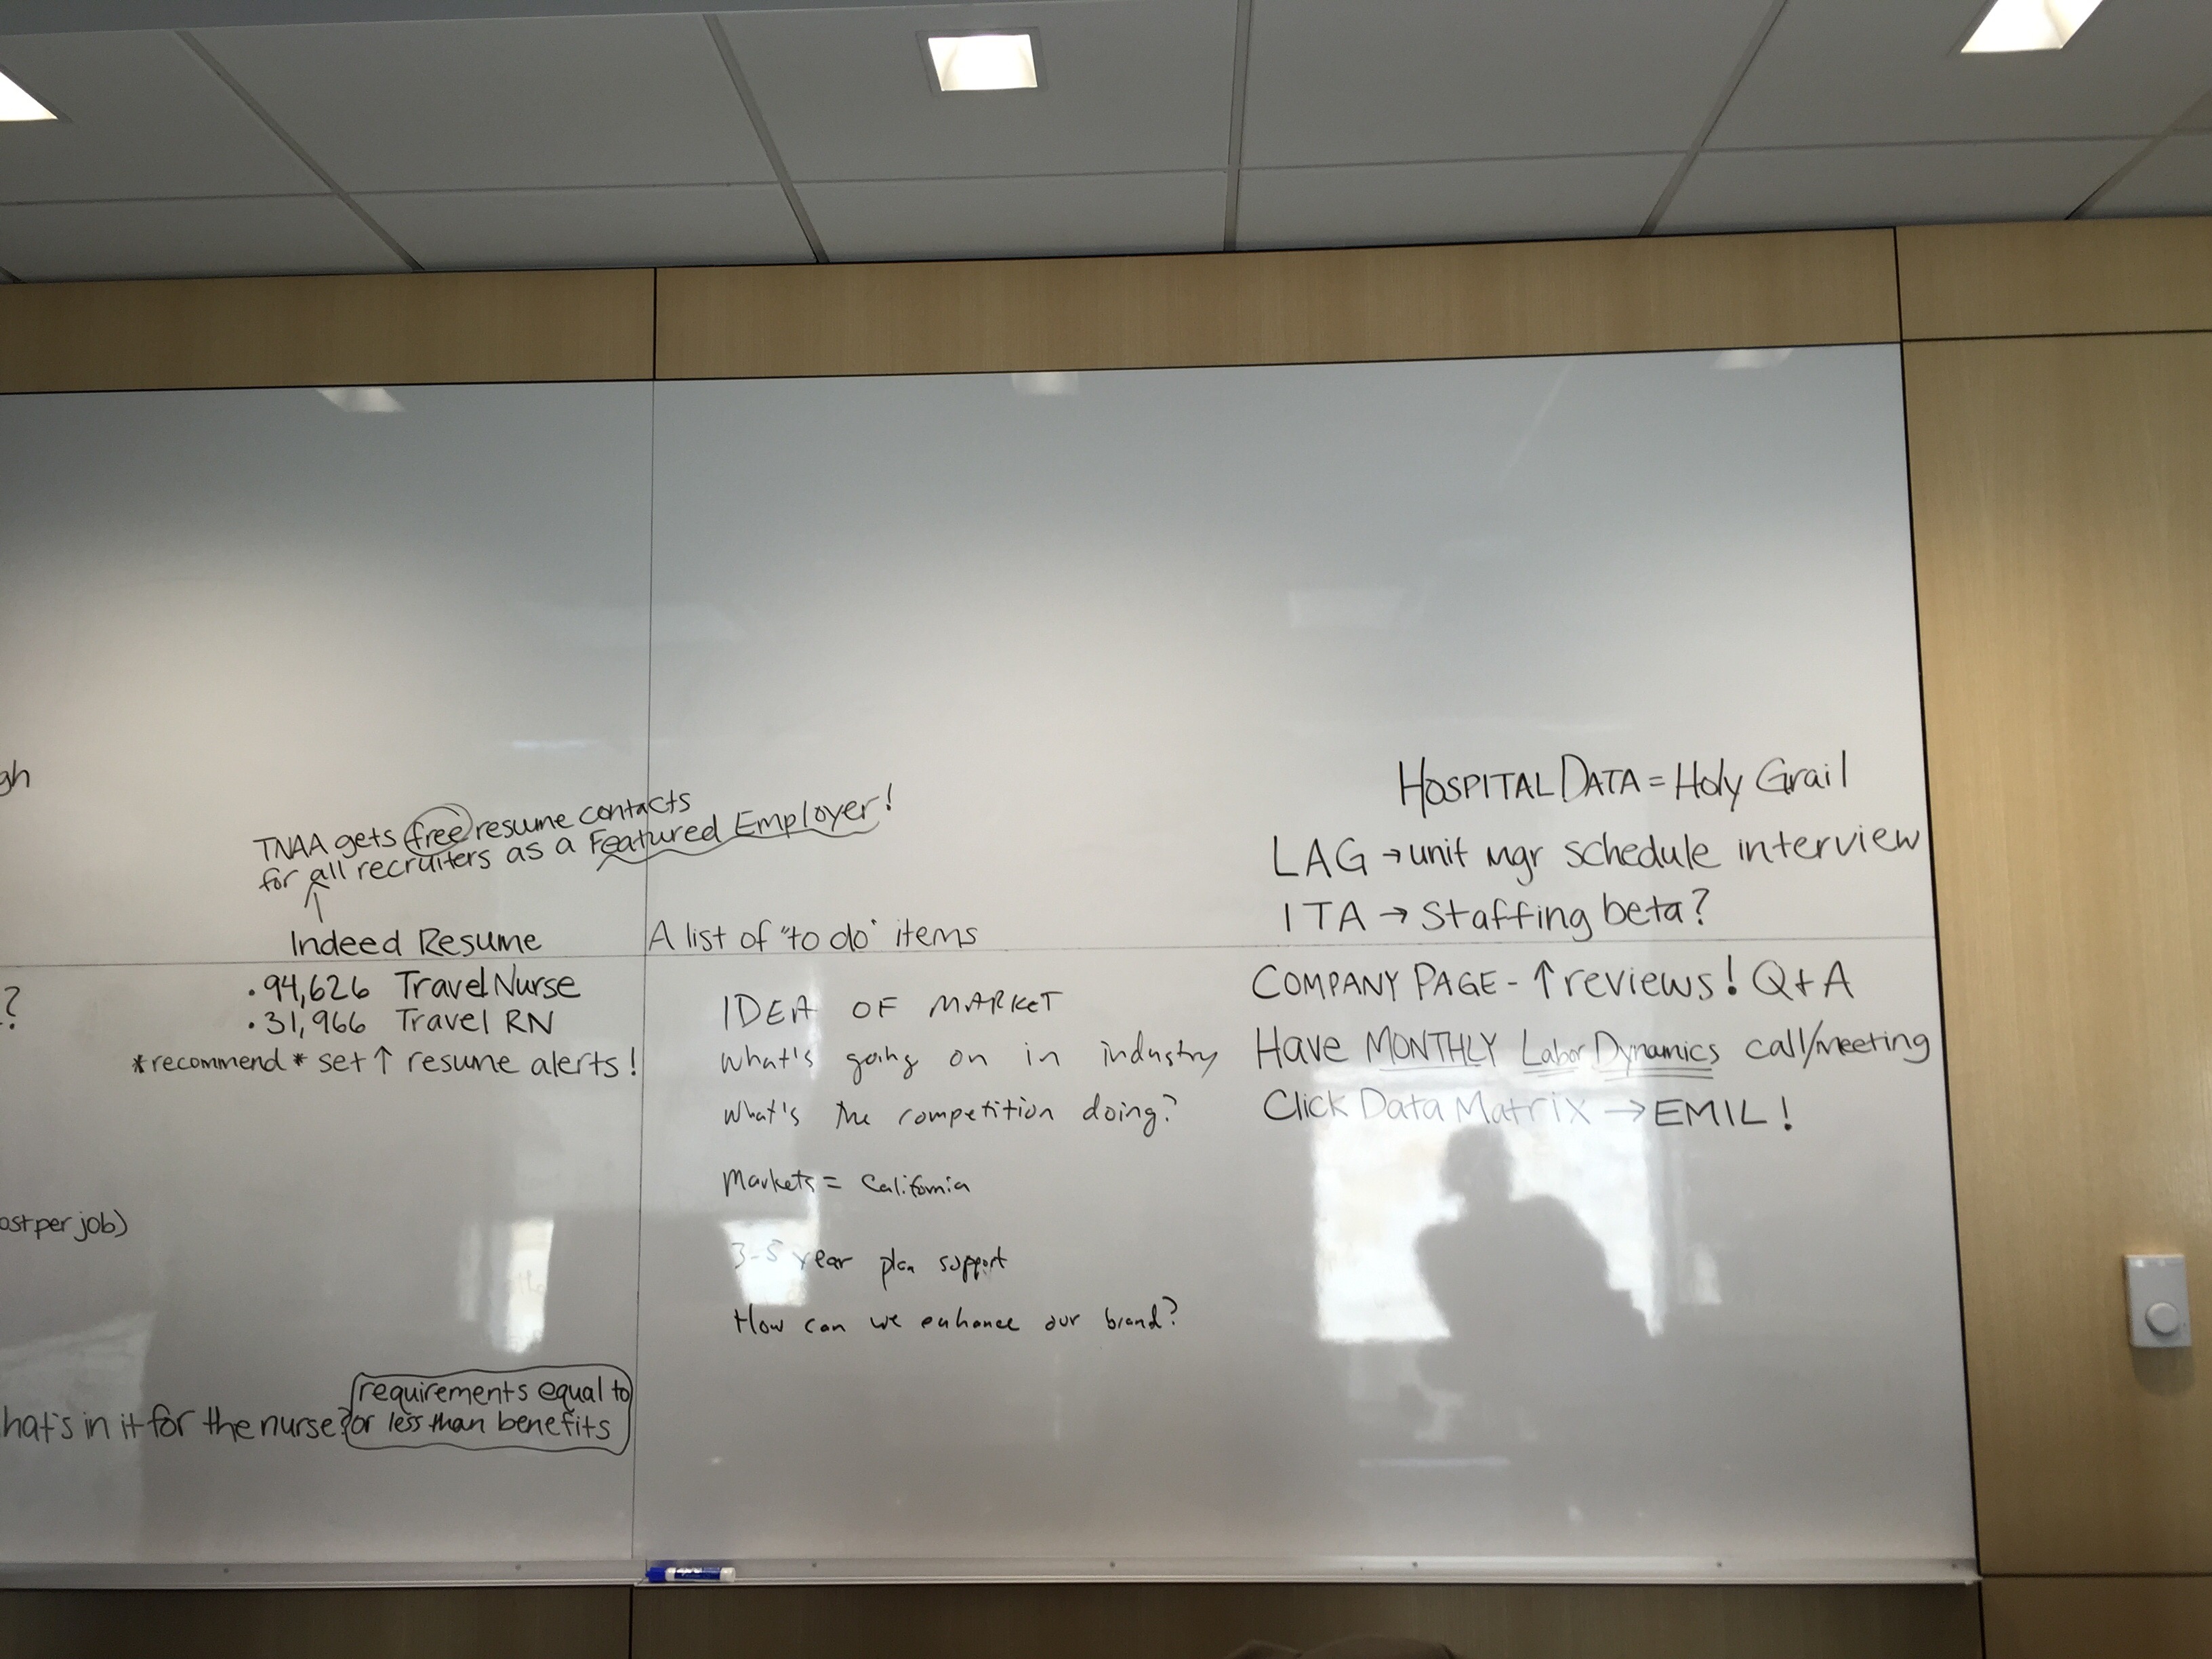 gh
TNAA gets free resume contacts
for all recruiters as a Featured Employer!
↑
Indeed Resume
·94,626 Travel Nurse
·31,966 Travel RN
*recommend* set↑ resume alerts!
?
ost per job)
hat's in it for the nurse?
requirements equal to
or less than benefits
A list of "to do" items
IDEA OF MARKET
What's going on in industry
What's the competition doing?
Markets = California
3-5 year plan support
How can we enhance our brand?
HOSPITAL DATA = Holy Grail
LAG → unit mgr schedule interview
ITA → Staffing beta?
COMPANY PAGE - ↑ reviews! Q+A
Have MONTHLY Labor Dynamics call/meeting
Click Data Matrix → EMIL!